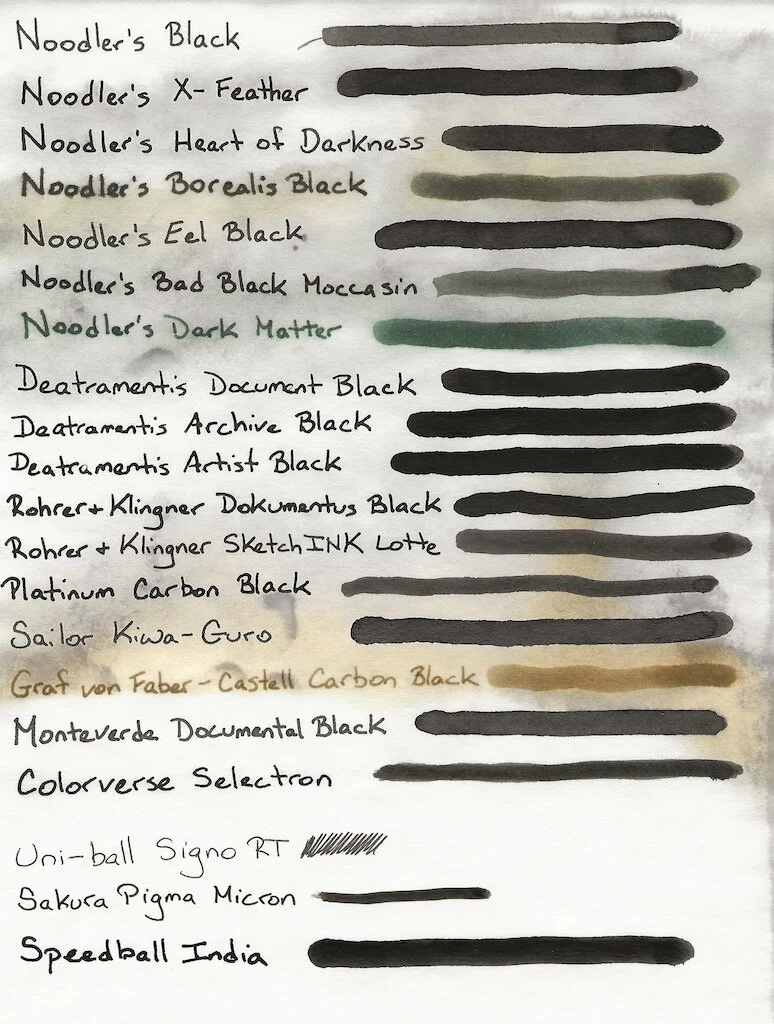 Noodler's Black
Noodler's X-Feather
Noodler's Heart of Darkness
Noodler's Borealis Black
Noodler's Eel Black
Noodler's Bad Black Moccasin
Noodler's Dark Matter
Deatramentis Document Black
Deatramentis Archive Black
Deatramentis Artist Black
Rohrer + Klingner Dokumentus Black
Rohrer + Klingner SketchINK Lotte
Platinum Carbon Black
Sailor Kiwa-Guro
Graf von Faber-Castell Carbon Black
Monteverde Documental Black
Colorverse Selectron
Uni-ball Signo RT
Sakura Pigma Micron
Speedball India